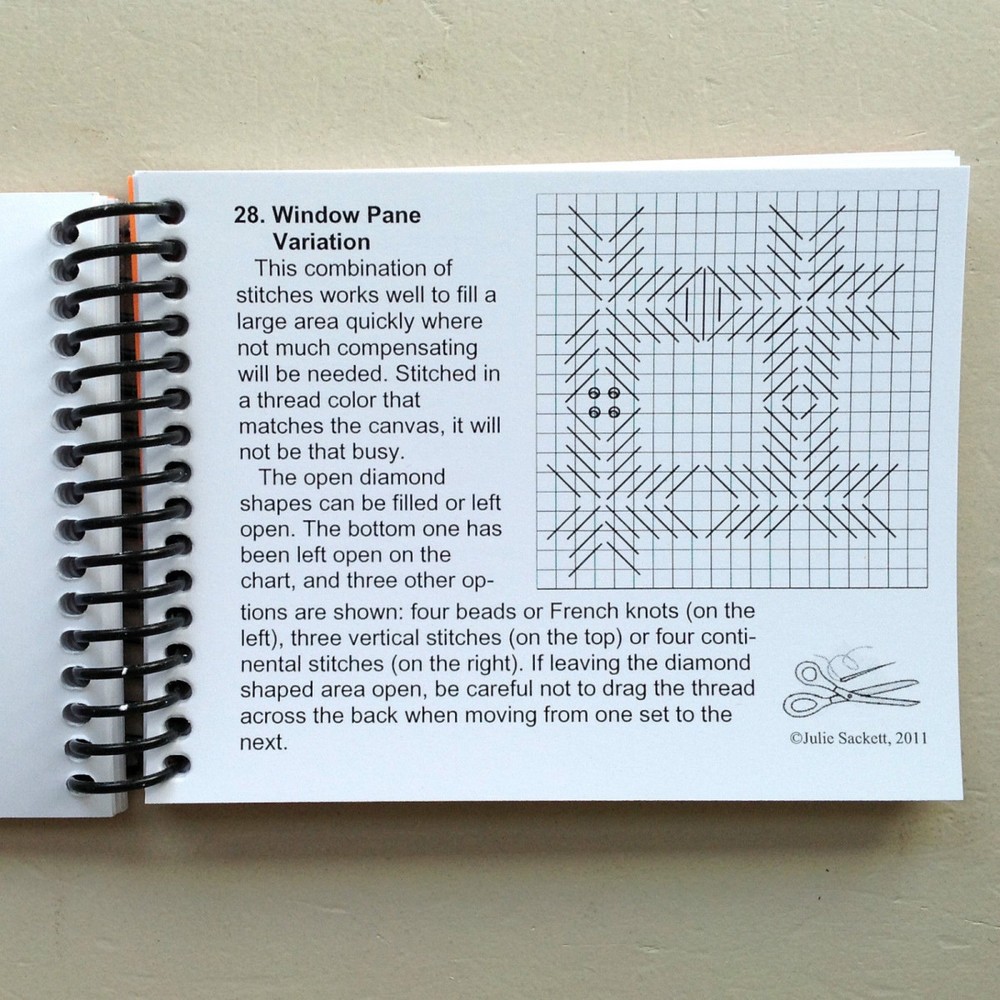 28. Window Pane
Variation
This combination of
stitches works well to fill a
large area quickly where
not much compensating
will be needed. Stitched in
a thread color that
matches the canvas, it will
not be that busy.
The open diamond
shapes can be filled or left
open. The bottom one has
been left open on the
chart, and three other op-
tions are shown: four beads or French knots (on the
left), three vertical stitches (on the top) or four conti-
nental stitches (on the right). If leaving the diamond
shaped area open, be careful not to drag the thread
across the back when moving from one set to the
next.
©Julie Sackett, 2011